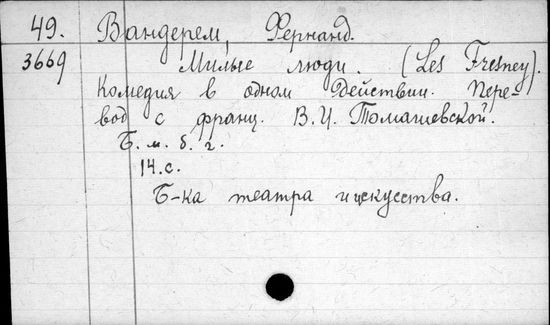 49. Вандерем, Фернанд.
3669 Милые люди. (Les Fresney).
Комедия в одном действии. Пере-
вод с франц. В.И. Томашевской.
Б. м. б. г.
14.с.
Б-ка театра и искусства.